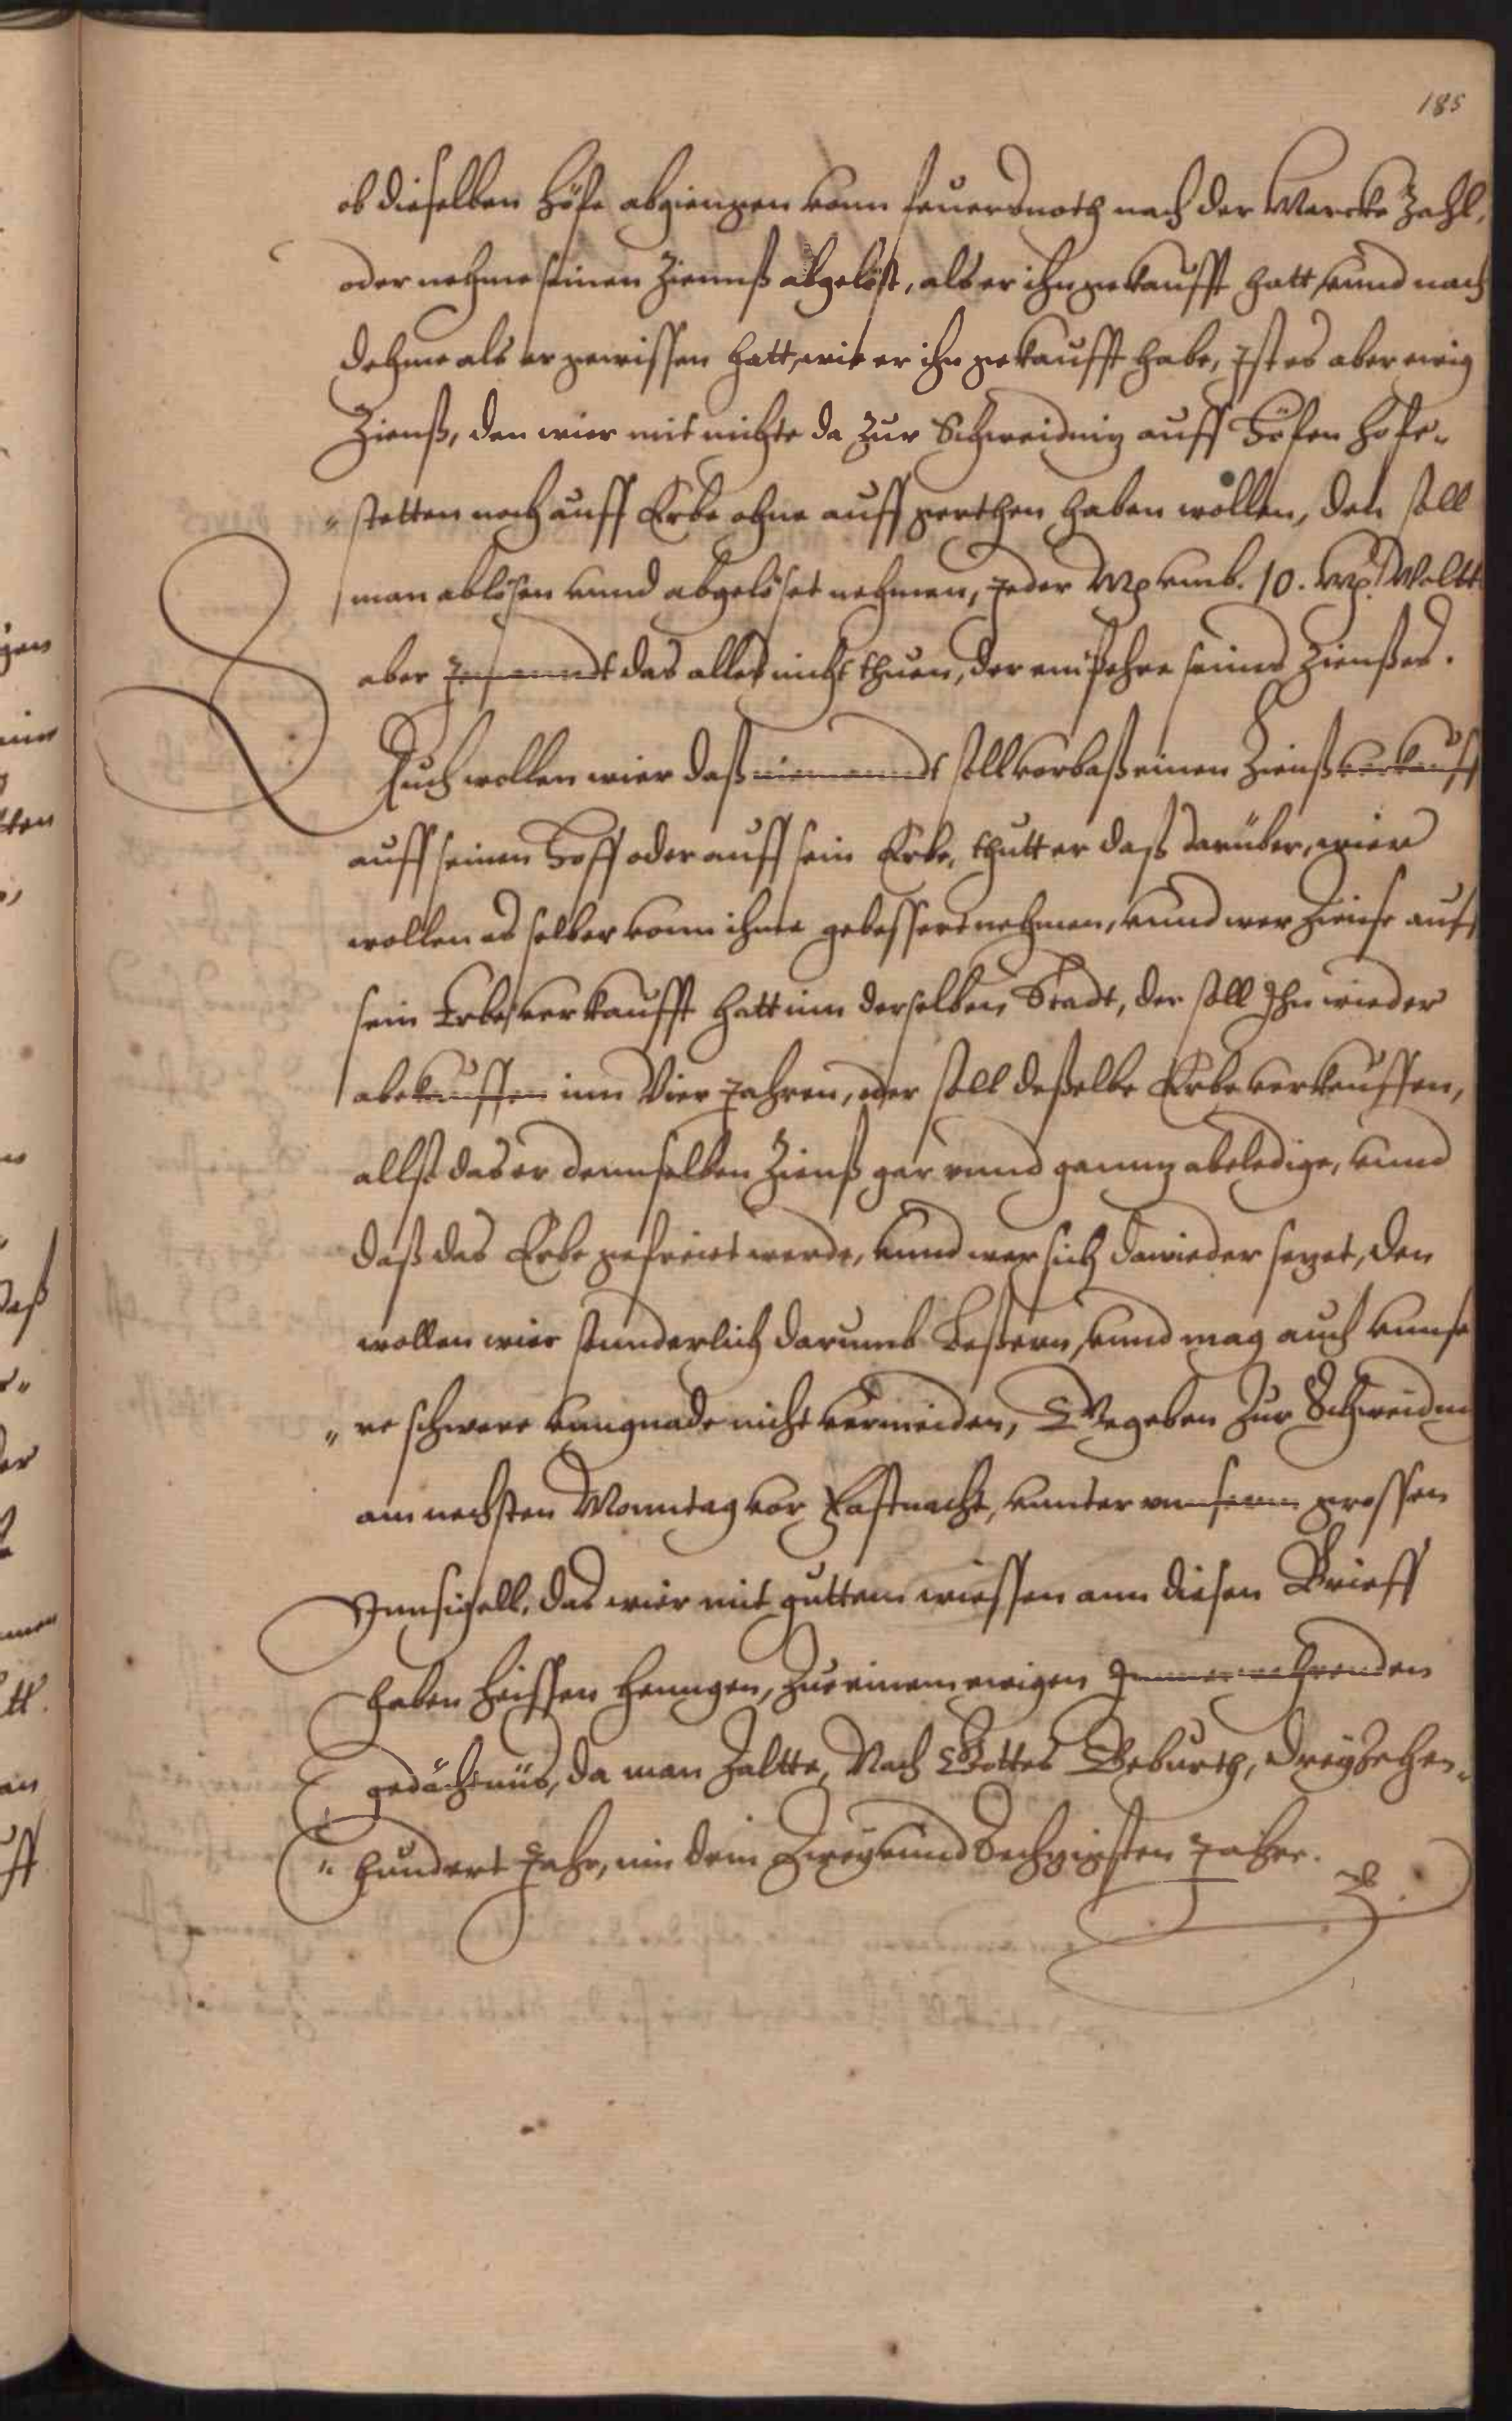 185
ob dieselben Höfe abgiengen vonn feuersnoth nach der Marcke Zahl,
oder nehme seinen Ziennß abgelöst, als er ihn gekaufft hatt, vnnd nach
dehme als er gewissen hatt, wie er ihn gekaufft habe, Ist es aber ewig
Zienß, den wier mit nichte da zur Schweidnig auff Höfen Hofe-
"stetten noch auff Erbe ohne auff gerthen haben wollen, den soll
man ablösen vnnd abgelöset nehmen, Jeder Mg vmb. 10. Mg. Woltt
aber Jemandt das alles nicht thuen, der empehre seines Zienßes.
Auch wollen wier daß niemandt soll vorbaß einen Zienß verkauff
auff seinen Hoff oder auff sein Erbe, thutt er daß darüber, wier
wollen es selber vonn ihme gebessert nehmen, vnnd wer Ziense auff
sein Erbe verkaufft hatt inn derselben Stadt, der soll Ihn wieder
abekauffen inn Vier Jahren, oder soll deßelbe Erbe verkauffen,
allß das er dennselben Zienß gar vnnd gannz abeledige, vnnd
daß das Erbe gefreiet werde, vnnd wer sich dawieder sezet, den
wollen wier sunderlich darumb Beßern, vnnd mag auch vnnse
"re schwere vangnade nicht vermeiden, Gegeben zur Schweidni
am nechsten Monntag vor Fastnacht, vnnter vnnserm grossen
Innsigell, das wier mit guttem wiessen ann diesen Brieff
haben heissen henngen, zue einem ewigen Immerwehrenden
gedächtnüs, da man Zaltte, Nach Gottes Geburth, dreyzehen-
"hundert Jahr, inn dem Zwey vnnd Sechzigsten Jahre.